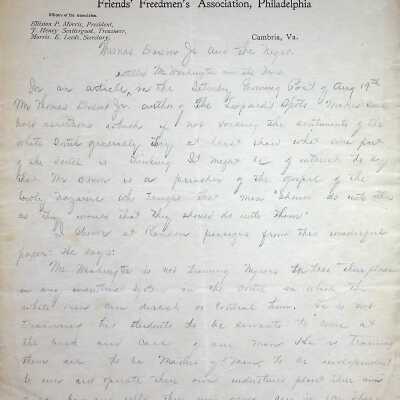 Friends' Freedmen's Association, Philadelphia
Officers of the Association.
Elliston P. Morris, President,
Morris E. Leeds, Secretary.
Cambria, Va.
Thomas Dixon Jr. and the Negro
Washington
In an article, in the Saturday Evening Post of Aug 19th
Mr Thomas Dixon Jr. author of The Leopard's Spots makes some
bold assertions which if not voicing the sentiments of the
white South generally they at least show what some part
of the South is thinking It might be of interest to say
that Mr Dixon is a preacher of the gospel of the
Lowly Nazarene who taught that men "Should do unto others
as they would that they should do unto them"
I at Random passages from this wonderful
paper: He says:
Mr Washington is not training Negroes to take their place
in any industrial system of the South in which the
white man can direct or control him. He is not
training his students to be servants to come at
the beck and call of any man He is training
them all to be Masters of Men, to be independent
to own and operate their own industries plant their own